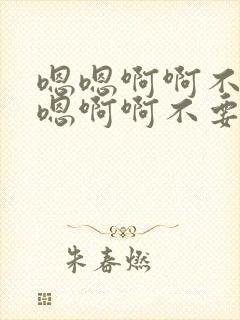 嗯嗯啊啊不
嗯啊啊不要
朱春燃